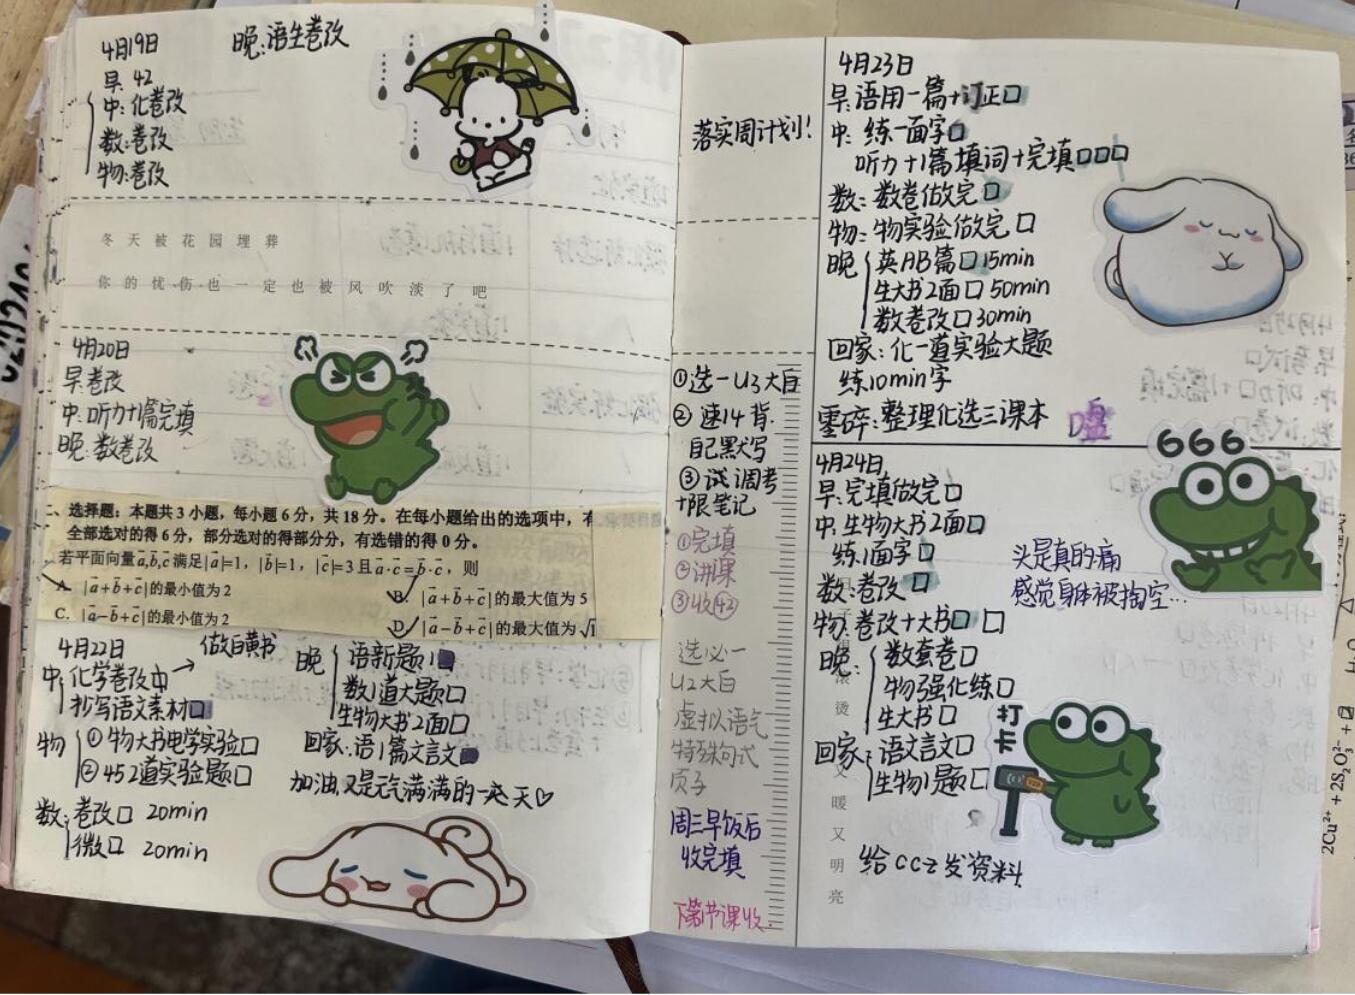 4月19日
晚:语生卷改
早:42
中:化卷改
数:卷改
物:卷改
冬天被花园埋葬
你的忧伤也一定也被风吹淡了吧
4月20日
早:卷改
中:听力+1篇完填
晚:数卷改
二、选择题:本题共3小题,每小题6分,共18分。在每小题给出的选项中,有
全部选对的得6分,部分选对的得部分分,有选错的得0分。
若平面向量a,b,c满足|a|=1,|b|=1,|c|=3且a·c=b·c,则
A. |a+b+c|的最小值为2
B. |a+b+c|的最大值为5
C. |a-b+c|的最小值为2
D. |a-b+c|的最大值为√1
4月22日
做白黄书
中:化学卷改中→
抄写语文素材口
物 ①物大书电学实验口
②452道实验题口
数:卷改口 20min
微口 20min
晚 语新题1口
数1道大题口
生物大书2面口
回家:语1篇文言文
加油,又是元气满满的一天♡
落实周计划!
①选一U3大白
②速14背.
自己默写
③试调考
+限笔记
①完填
②讲课
③收42
选必一
U2大白
虚拟语气
特殊句式
周三早饭后
收完填
下第节课收
4月23日
早:语用一篇+订正口
中:练一面字口
听力+1篇填词+完填口口口
数:数卷做完口
物:物实验做完口
晚 英AB篇口15min
生大书2面口50min
数卷改口30min
回家:化一道实验大题
练10min字
零碎:整理化选三课本
U盘
666
4月24日
早:完填做完口
中:生物大书2面口
练1面字口
数:卷改口
物:卷改+大书口 口
头是真的痛
感觉身体被掏空...
晚: 数套卷口
物强化练口
生大书口
回家:语文言文口
生物1题口
打卡
烫
又
暖
又
明
亮
给ccz发资料
2Cu²⁺+2S₂O₃²⁻+